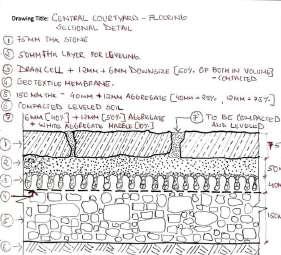 Drawing Title: CENTRAL COURTYARD - FLOORING
SECTIONAL DETAIL
① 75MM THK STONE
② 50MM THK LAYER FOR LEVELING
③ DRAIN CELL + 12MM + 6MM DOWNSIZE [50% OF BOTH IN VOLUME]
- COMPACTED
④ GEOTEXTILE MEMBRANE.
⑤ 150 MM THK - 40MM + 12MM AGGREGATE [40MM = 75%, 12MM = 25%]
⑥ COMPACTED LEVELED SOIL
⑦ 6MM [40%] + 12MM [50%] AGGREGATE
+ WHITE AGGREGATE MARBLE [10%]
⑦ TO BE COMPACTED
AND LEVELED
① 75
② 50
③ 40
④
⑤ 150
⑥